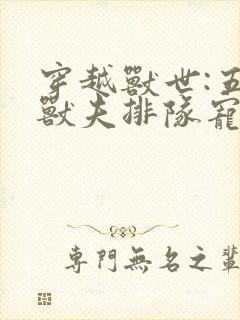 穿越獸世:五
獸夫排隊寵
專門無名之輩